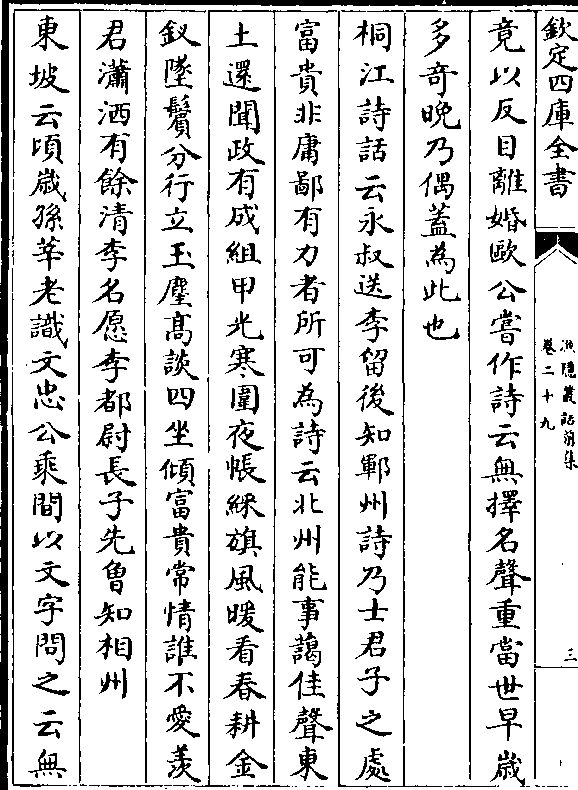 欽定四庫全書
漁隱叢話前集
卷二十九
三
竟以反目離婚歐公嘗作詩云無擇名聲重當世早嵗
多奇晚乃偶葢為此也
桐江詩話云永叔送李留後知鄆州詩乃士君子之處
富貴非庸鄙有力者所可為詩云北州能事藹佳聲東
土還聞政有成組甲光寒圍夜帳綵旗風暖看春耕金
釵墜鬢分行立玉麈髙談四坐傾富貴常情誰不愛羨
君瀟洒有餘清李名愿李都尉長子先曾知相州
東坡云頃嵗孫莘老識文忠公乘間以文字問之云無